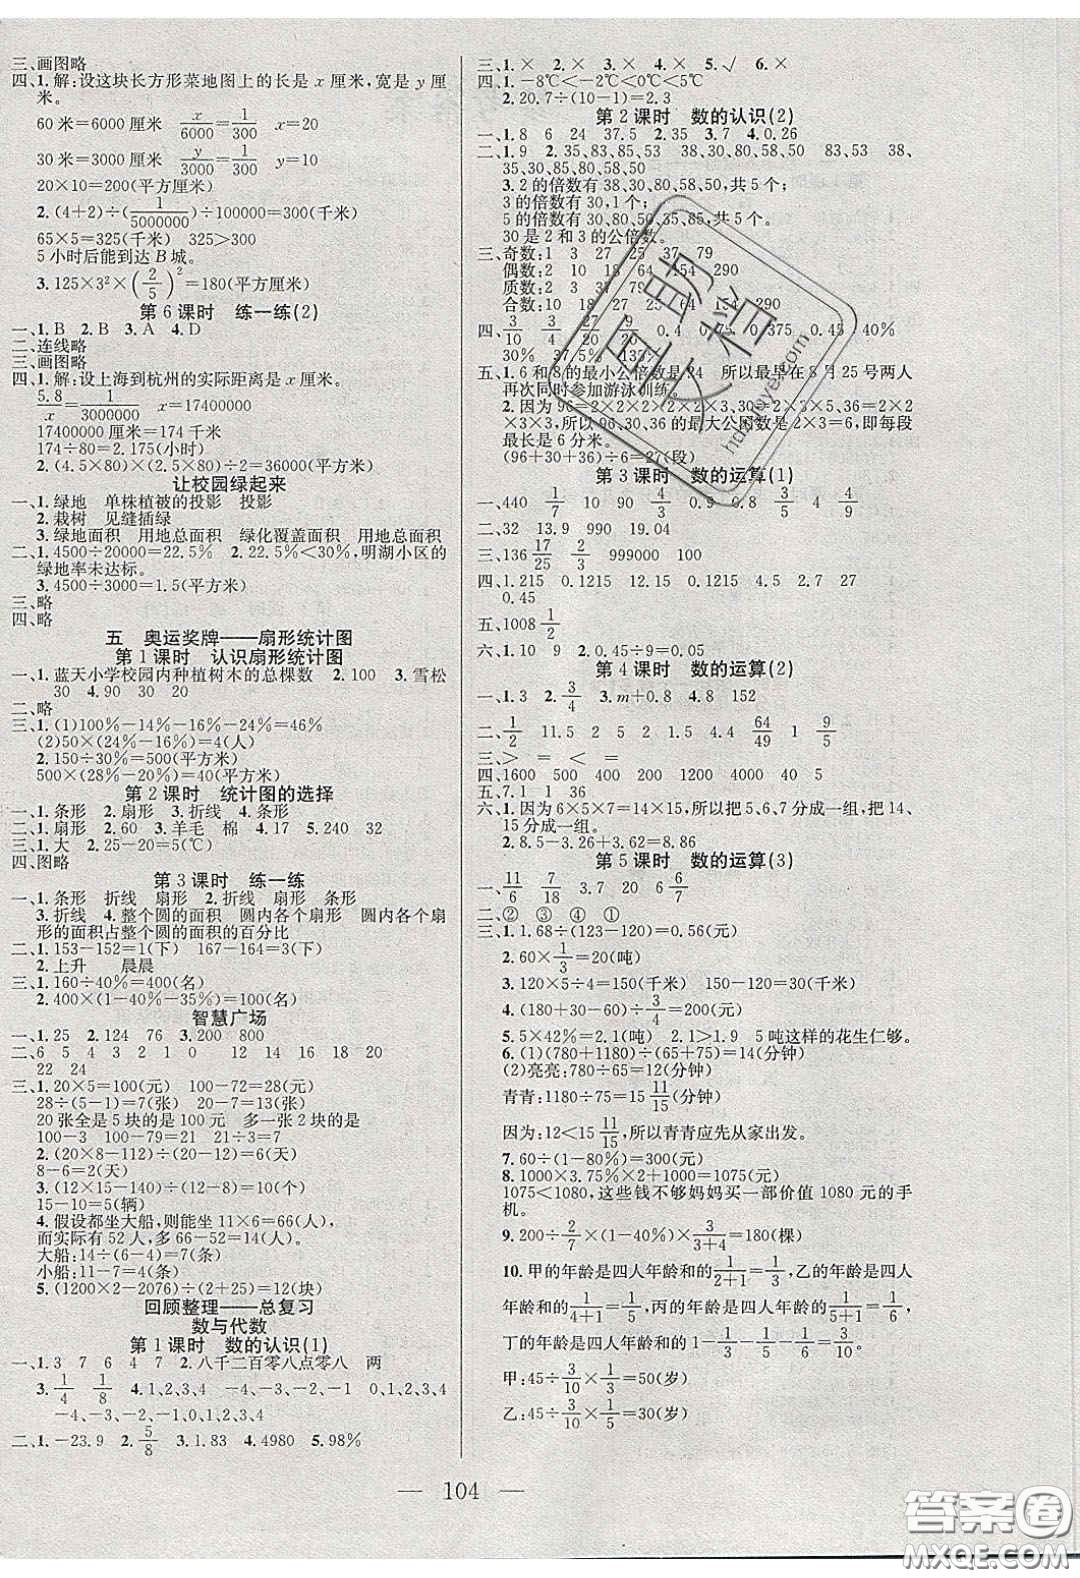 三、画图略
四、1.解:设这块长方形菜地图上的长是x厘米,宽是y厘
米。
60米=6000厘米 x/6000=1/300 x=20
30米=3000厘米 y/3000=1/300 y=10
20×10=200(平方厘米)
2.(4+2)÷(1/5000000)÷100000=300(千米)
65×5=325(千米) 325>300
5小时后能到达B城。
3.125×3²×(2/5)²=180(平方厘米)
第6课时 练一练(2)
一、1.B 2.B 3.A 4.D
二、连线略
三、画图略
四、1.解:设上海到杭州的实际距离是x厘米。
5.8/x=1/3000000 x=17400000
17400000厘米=174千米
174÷80=2.175(小时)
2.(4.5×80)×(4.5×80)÷2=36000(平方米)
让校园绿起来
一、1.绿地 单株植被的投影 投影
2.栽树 见缝插绿
3.绿地面积 用地总面积 绿化覆盖面积 用地总面积
二、1.4500÷20000=22.5% 2.22.5%<30%,明湖小区的
绿地率未达标。
3.4500÷3000=1.5(平方米)
三、略
四、略
五 奥运奖牌——扇形统计图
第1课时 认识扇形统计图
一、1.蓝天小学校园内种植树木的总棵数 2.100 3.雪松
30 4.90 30 20
二、略
三、1.(1)100%-14%-16%-24%=46%
(2)50×(24%-16%)=4(人)
2.150÷30%=500(平方米)
500×(28%-20%)=40(平方米)
第2课时 统计图的选择
一、1.条形 2.扇形 3.折线 4.条形
二、1.扇形 2.60 3.羊毛 棉 4.17 5.240 32
三、1.大 2.25-20=5(℃)
四、图略
第3课时 练一练
一、1.条形 折线 扇形 2.折线 扇形 条形
3.折线 4.整个圆的面积 圆内各个扇形 圆内各个扇
形的面积占整个圆的面积的百分比
二、1.153-152=1(下) 167-164=3(下)
2.上升 晨晨
三、1.160÷40%=400(名)
2.400×(1-40%-35%)=100(名)
智慧广场
一、1.25 2.124 76 3.200 800
二、6 5 4 3 2 1 0 12 14 16 18 20
22 24
三、1.20×5=100(元) 100-72=28(元)
28÷(5-1)=7(张) 20-7=13(张)
20张全是5块的是100元 多一张2块的是
100-3 100-79=21 21÷3=7
2.(20×8-112)÷(20-12)=6(天)
8-6=2(天)
3.(12×15-140)÷(12-8)=10(辆)
15-10=5(辆)
4.假设都坐大船,则能坐11×6=66(人),
而实际有52人,多66-52=14(人)
大船:14÷(6-4)=7(条)
小船:11-7=4(条)
5.(1200×2-2076)÷(2+25)=12(块)
回顾整理——总复习
数与代数
第1课时 数的认识(1)
一、1.3 7 6 4 7 2.八千二百零八点零八 两
3.1/4 1/8 4.1,2,3,4 -4、-3、-2、-1 0,1,2,3,4
-4、-3、-2、-1、0、1、2、3、4
二、1.-23.9 2.5/8 3.1.83 4.4980 5.98%
三、1.× 2.× 3.× 4.× 5.√ 6.×
四、1.-8℃<-2℃<0℃<5℃
2.20.7÷(10-1)=2.3
第2课时 数的认识(2)
一、1.8 6 24 37.5 2.35 3.7 4.0.26
二、1.9 2.35,83,85,53 38,30,80,58,50 83,53 38,
35,30,85,80,58,50
3.2的倍数有38,30,80,58,50,共5个;
3的倍数有30,1个;
5的倍数有30,80,50,35,85,共5个。
30是2和3的公倍数。
三、奇数:1 3 27 25 37 79
偶数:2 10 18 64 154 290
质数:2 3 37 79
合数:10 18 27 25 64 154 290
四、3/10 3/4 9/20 27/20 0.4 0.75 0.375 0.45 40%
30% 37.5% 135%
五、1.6和8的最小公倍数是24 所以最早在8月25号两人
再次同时参加游泳训练。
2.因为96=2×2×2×2×2×3、30=2×3×5、36=2×2
×3×3,所以96、30、36的最大公因数是2×3=6,即每段
最长是6分米。
(96+30+36)÷6=27(段)
第3课时 数的运算(1)
一、440 1/7 10 90 3/4 0.9 0.8 3/4 5/4 4/9
二、32 13.9 990 19.04
三、136 17/25 2/3 999000 100
四、1.1215 0.1215 12.15 0.1215 4.5 2.7 27
0.45
五、1008 1/2
六、1.10590 2.0.45÷9=0.05
第4课时 数的运算(2)
一、1.3 2.3/4 3.m+0.8 4.8 152
二、1/2 11.5 2 5 2 1.5 2.4 64/49 1 9/5
三、> = < = =
四、1600 500 400 200 1200 4000 2000
五、7.1 1 36
六、1.因为6×5×7=14×15,所以把5、6、7分成一组,把14、
15分成一组。
2.8.5-3.26+3.62=8.86
第5课时 数的运算(3)
一、11/6 7/18 3 20 6 6/7
二、② ③ ④ ①
三、1.68÷(123-120)=0.56(元)
2.60×1/3=20(吨)
3.120×5÷4=150(千米)
4.(180+30-60)÷3/4=200(元)
5.5×42%=2.1(吨) 2.1>1.9 5吨这样的花生仁够。
6.(1)(780+1180)÷(65+75)=14(分钟)
(2)亮亮:780÷65=12(分钟)
青青:1180÷75=15 11/15(分钟)
因为:12<15 11/15,所以青青应先从家出发。
7.60÷(1-80%)=300(元)
8.1000×3.75%×2+1000=1075(元)
1075<1080,这些钱不够妈妈买一部价值1080元的手
机。
9.200÷2/7×(1-40%)×3/(3+4)=180(棵)
10.甲的年龄是四人年龄和的1/(2+1)=1/3,乙的年龄是四人
年龄和的1/(4+1)=1/5,丙的年龄是四人年龄和的1/(5+1)=1/6,
丁的年龄是四人年龄和的1-1/3-1/5-1/6=3/10
甲:45÷3/10×1/3=50(岁)
乙:45÷3/10×1/5=30(岁)
— 104 —
答案圈
MXQE.COM